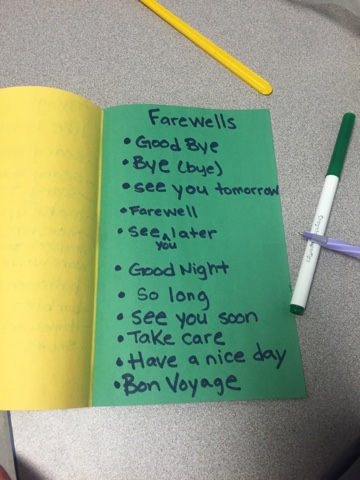 Farewells
• Good Bye
• Bye (bye)
• see you tomorrow
• Farewell
• see you later
• Good Night
• So long
• See you soon
• Take care
• Have a nice day
• Bon Voyage